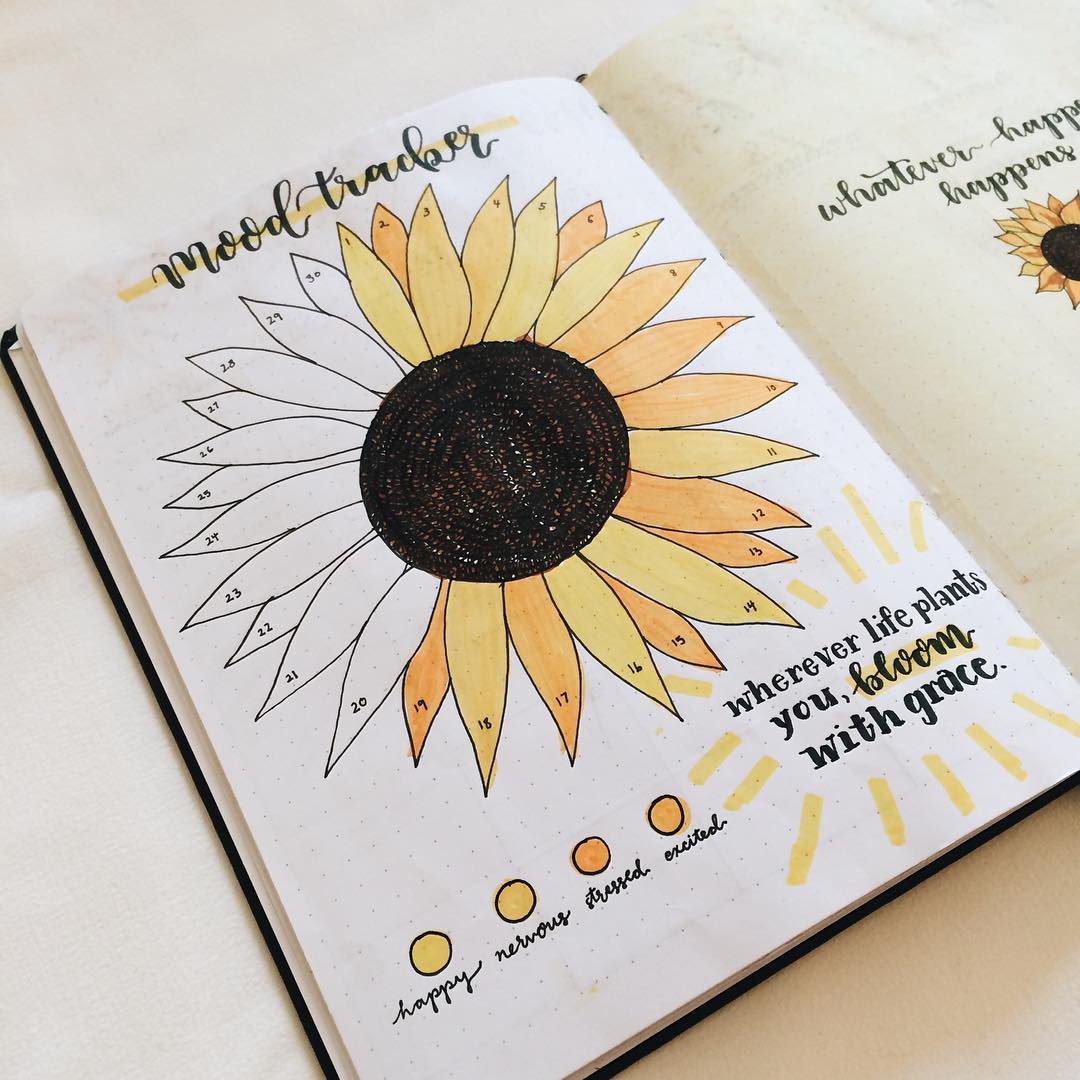 mood tracker
1
2
3
4
5
6
7
8
9
10
11
12
13
14
15
16
17
18
19
20
21
22
23
24
25
26
27
28
29
30
wherever life plants
you, bloom
with grace.
happy
nervous
stressed
excited
whatever
happens